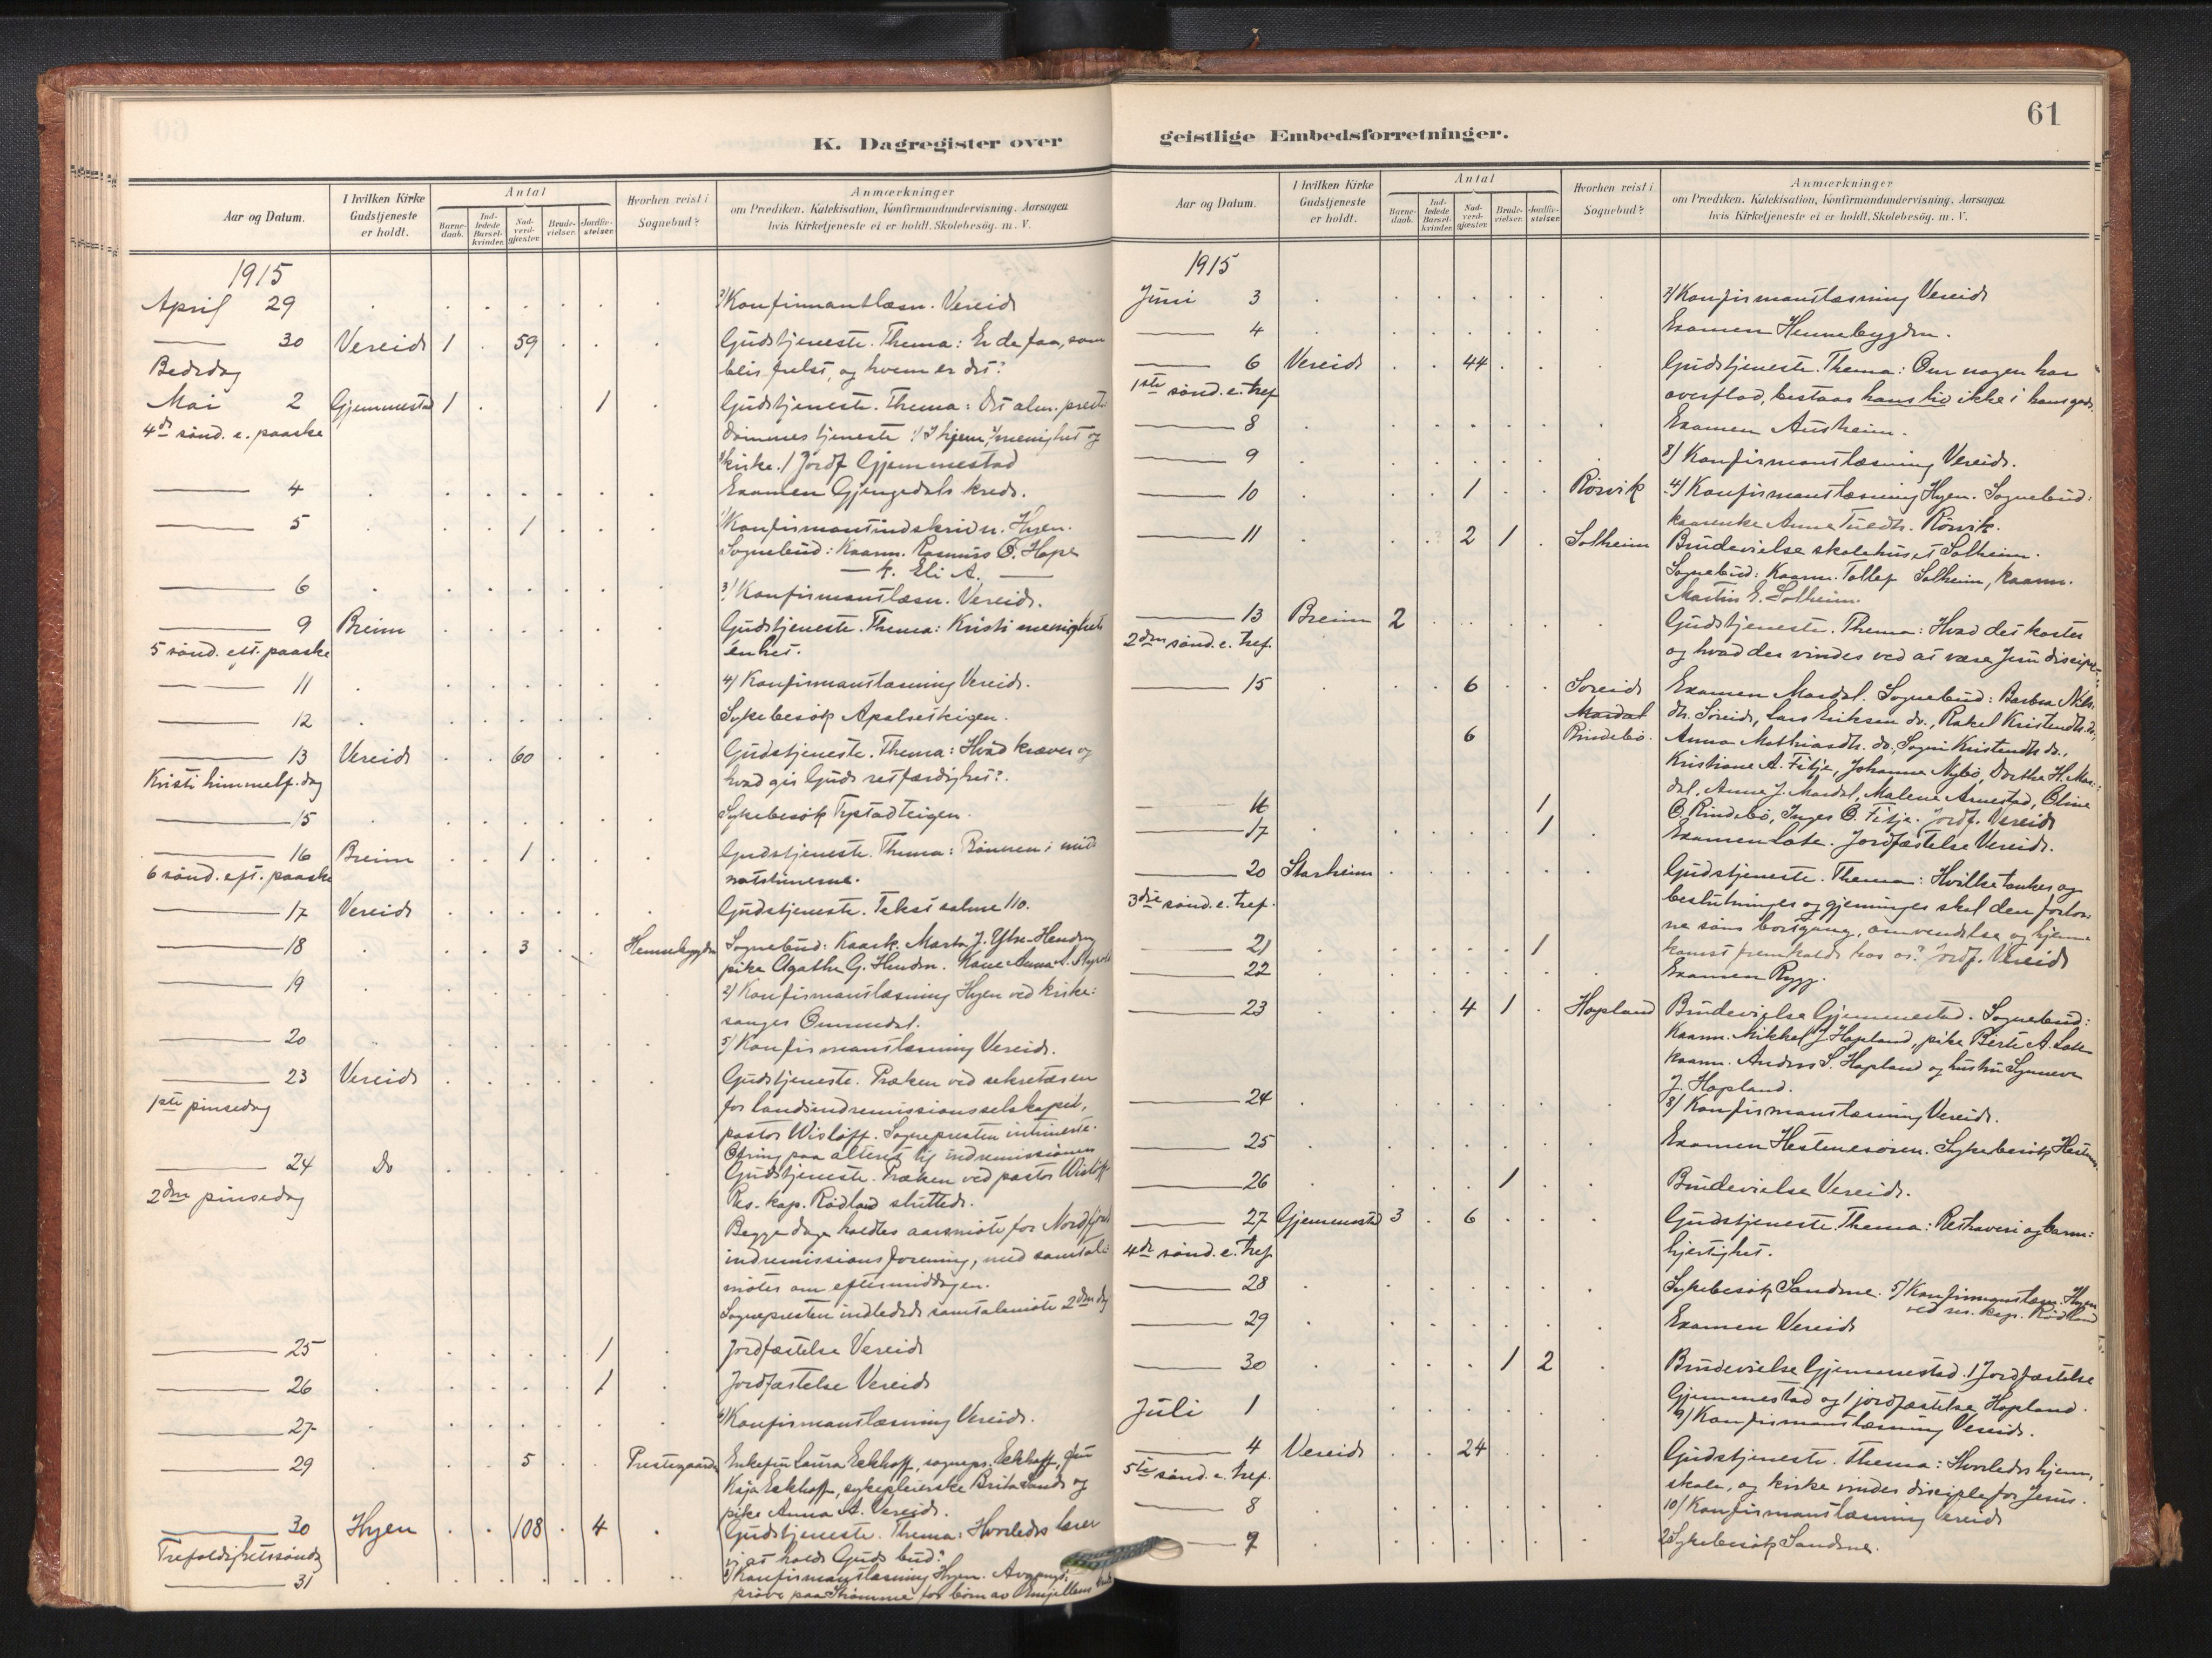 K. Dagregister over
Aar og Datum.
I hvilken Kirke Gudstjeneste er holdt.
Antal
Barne-daab.
Ind-ledede Barsel-kvinder.
Nad-verd-gjæster.
Brude-vielser.
Jordfæ-stelser.
Hvorhen reist i Sognebud?
Anmærkninger
om Prædiken, Katekisation, Konfirmandundervisning, Aarsagen
hvis Kirketjeneste ei er holdt, Skolebesøg, m. V.
1915
April 29 Konfirmantlæsn. Vereide
30 Vereide 1 59 Gudstjeneste. Thema: Er de faa, som
Bededag blir frelst, og hvem er det?
Mai 2 Gjemmestad 1 1 Gudstjeneste. Thema: Det alm. preste
4de sønd. e. paaske dømmes tjeneste 1/ I hjem, 2/ menighet og
3/ kirke. 1 Jordf. Gjemmestad
4 Examen Gjengedals kreds.
5 1 1/ Konfirmantindskrivn. Hyen.
Sognebud: Kaarm. Rasmus O. Hope
k. Eli A.
6 3/ Konfirmantlæsn. Vereide.
9 Breim Gudstjeneste. Thema: Kristi menighets
5 sønd. eft. paaske enhet.
11 4/ Konfirmantlæsning Vereide.
12 Sykebesøk Apalseteigen.
13 Vereide 60 Gudstjeneste. Thema: Hvad kræver og
Kristi himmelf. dag hvad gir Guds retfærdighet?
15 Sykebesøk Tystadteigen.
16 Breim 1 Gudstjeneste. Thema: Bønnen i mid
6 sønd. eft. paaske natstimerne.
17 Vereide Gudstjeneste. Tekst salme 110.
18 3 Hennebygden Sognebud: Kaark. Marta J. Ytre-Henden
pike Agathe G. Henden. Kone Anna A.
19 2/ Konfirmantlæsning Hyen ved kirke:
sanger Ommedal.
20 5/ Konfirmantlæsning Vereide.
23 Vereide Gudstjeneste. Præken ved sekretæren
1ste pinsedag for landsindremissionsselskapet,
pastor Wisløff. Sognepresten intimerte.
Ofring paa alteret til indremissionen
24 Do Gudstjeneste. Præken ved pastor Wisløff
2den pinsedag Res. kap. Rødland sluttede.
Begge dage holdtes aarsmøte for Nordfjord
indremissionsforening, med samtale
møter om eftermiddagen.
Sognepresten indledede samtalemøte 2den dag
25 1 Jordfæstelse Vereide
26 1 Jordfæstelse Vereide
27 6/ Konfirmantlæsning Vereide.
29 5 Prestegaarden Enkefru Laura Eckhoff, sognepr. Eckhoff, fru
Kaja Eckhoff, sykepleierske Brita Sande og
pike Anna A. Vereide.
30 Hyen 108 4 Gudstjeneste. Thema: Hvorledes lærer
Trefoldighetssøndag vi at holde Guds bud?
31 3/ Konfirmantlæsning Hyen. Avgangs:
prøve paa Straumme for børn av
geistlige Embedsforretninger.
61
Aar og Datum.
I hvilken Kirke Gudstjeneste er holdt.
Antal
Barne-daab.
Ind-ledede Barsel-kvinder.
Nad-verd-gjæster.
Brude-vielser.
Jordfæ-stelser.
Hvorhen reist i Sognebud?
Anmærkninger
om Prædiken, Katekisation, Konfirmandundervisning, Aarsagen
hvis Kirketjeneste ei er holdt, Skolebesøg, m. V.
1915
Juni 3 7/ Konfirmantlæsning Vereide
4 Examen Hennebygden.
6 Vereide 44 Gudstjeneste. Thema: Om nogen har
1ste sønd. e. tref. overflod, bestaar hans liv ikke i hans gods.
8 Examen Austheim.
9 8/ Konfirmantlæsning Vereide.
10 1 Rørvik 4/ Konfirmantlæsning Hyen. Sognebud:
kaarenke Anna Rørvik.
11 2 1 Solheim Brudevielse skolehuset Solheim.
Sognebud: Kaarm. Tollef Solheim, kaarm.
Martin E. Solheim.
13 Breim 2 Gudstjeneste. Thema: Hvad det koster
2den sønd. e. tref. og hvad der vindes ved at være Jesu discipel.
15 6 Søreide Examen Mardal. Sognebud: Barbra Nils
Mardal dtr. Søreide, Lars Eriksen do., Rakel Kristendtr. do.,
6 Rindebø. Anna Mathiasdtr. do., Sogni Kristendtr. do.,
Kristiane A. Fitje, Johanne Nybø, Dorthe H. Mar:
dal, Anna J. Mardal, Malene Arnestad, Oline
16 1 O. Rindebø, Inger O. Fitje. Jordf. Vereide
17 1 Examen Lote. Jordfæstelse Vereide.
20 Starheim Gudstjeneste. Thema: Hvilke tanker og
3dje sønd. e. tref. beslutninger og gjerninger skal den fortap
ne søns bortgang, omvendelse og hjem
21 1 komst fremkalde hos os? Jordf. Vereide
22 Examen Rygg.
23 4 1 Hopland Brudevielse Gjemmestad. Sognebud:
Kaarm. Mikkel J. Hopland, pike Berte A. Lote
kaarm. Anders S. Hopland og hustru Synneve
J. Hopland.
24 8/ Konfirmantlæsning Vereide.
25 Examen Hestenesøren. Sykebesøk Hestenes.
26 1 Brudevielse Vereide.
27 Gjemmestad 3 6 Gudstjeneste. Thema: Rethaveri og barm:
4de sønd. e. tref. hjertighet.
28 Sykebesøk Sandene. 5/ Konfirmantlæsn. Hyen
ved res. kap. Rødland
29 Examen Vereide
30 1 2 Brudevielse Gjemmestad. 1 Jordfæstelse
Gjemmestad og 1 jordfæstelse Hopland.
Juli 1 9/ Konfirmantlæsning Vereide.
4 Vereide 24 Gudstjeneste. Thema: Hvorledes hjem,
5te sønd. e. tref. skole, og kirke vinder disciple for Jesus.
8 10/ Konfirmantlæsning Vereide
9 Sykebesøk Sandene.